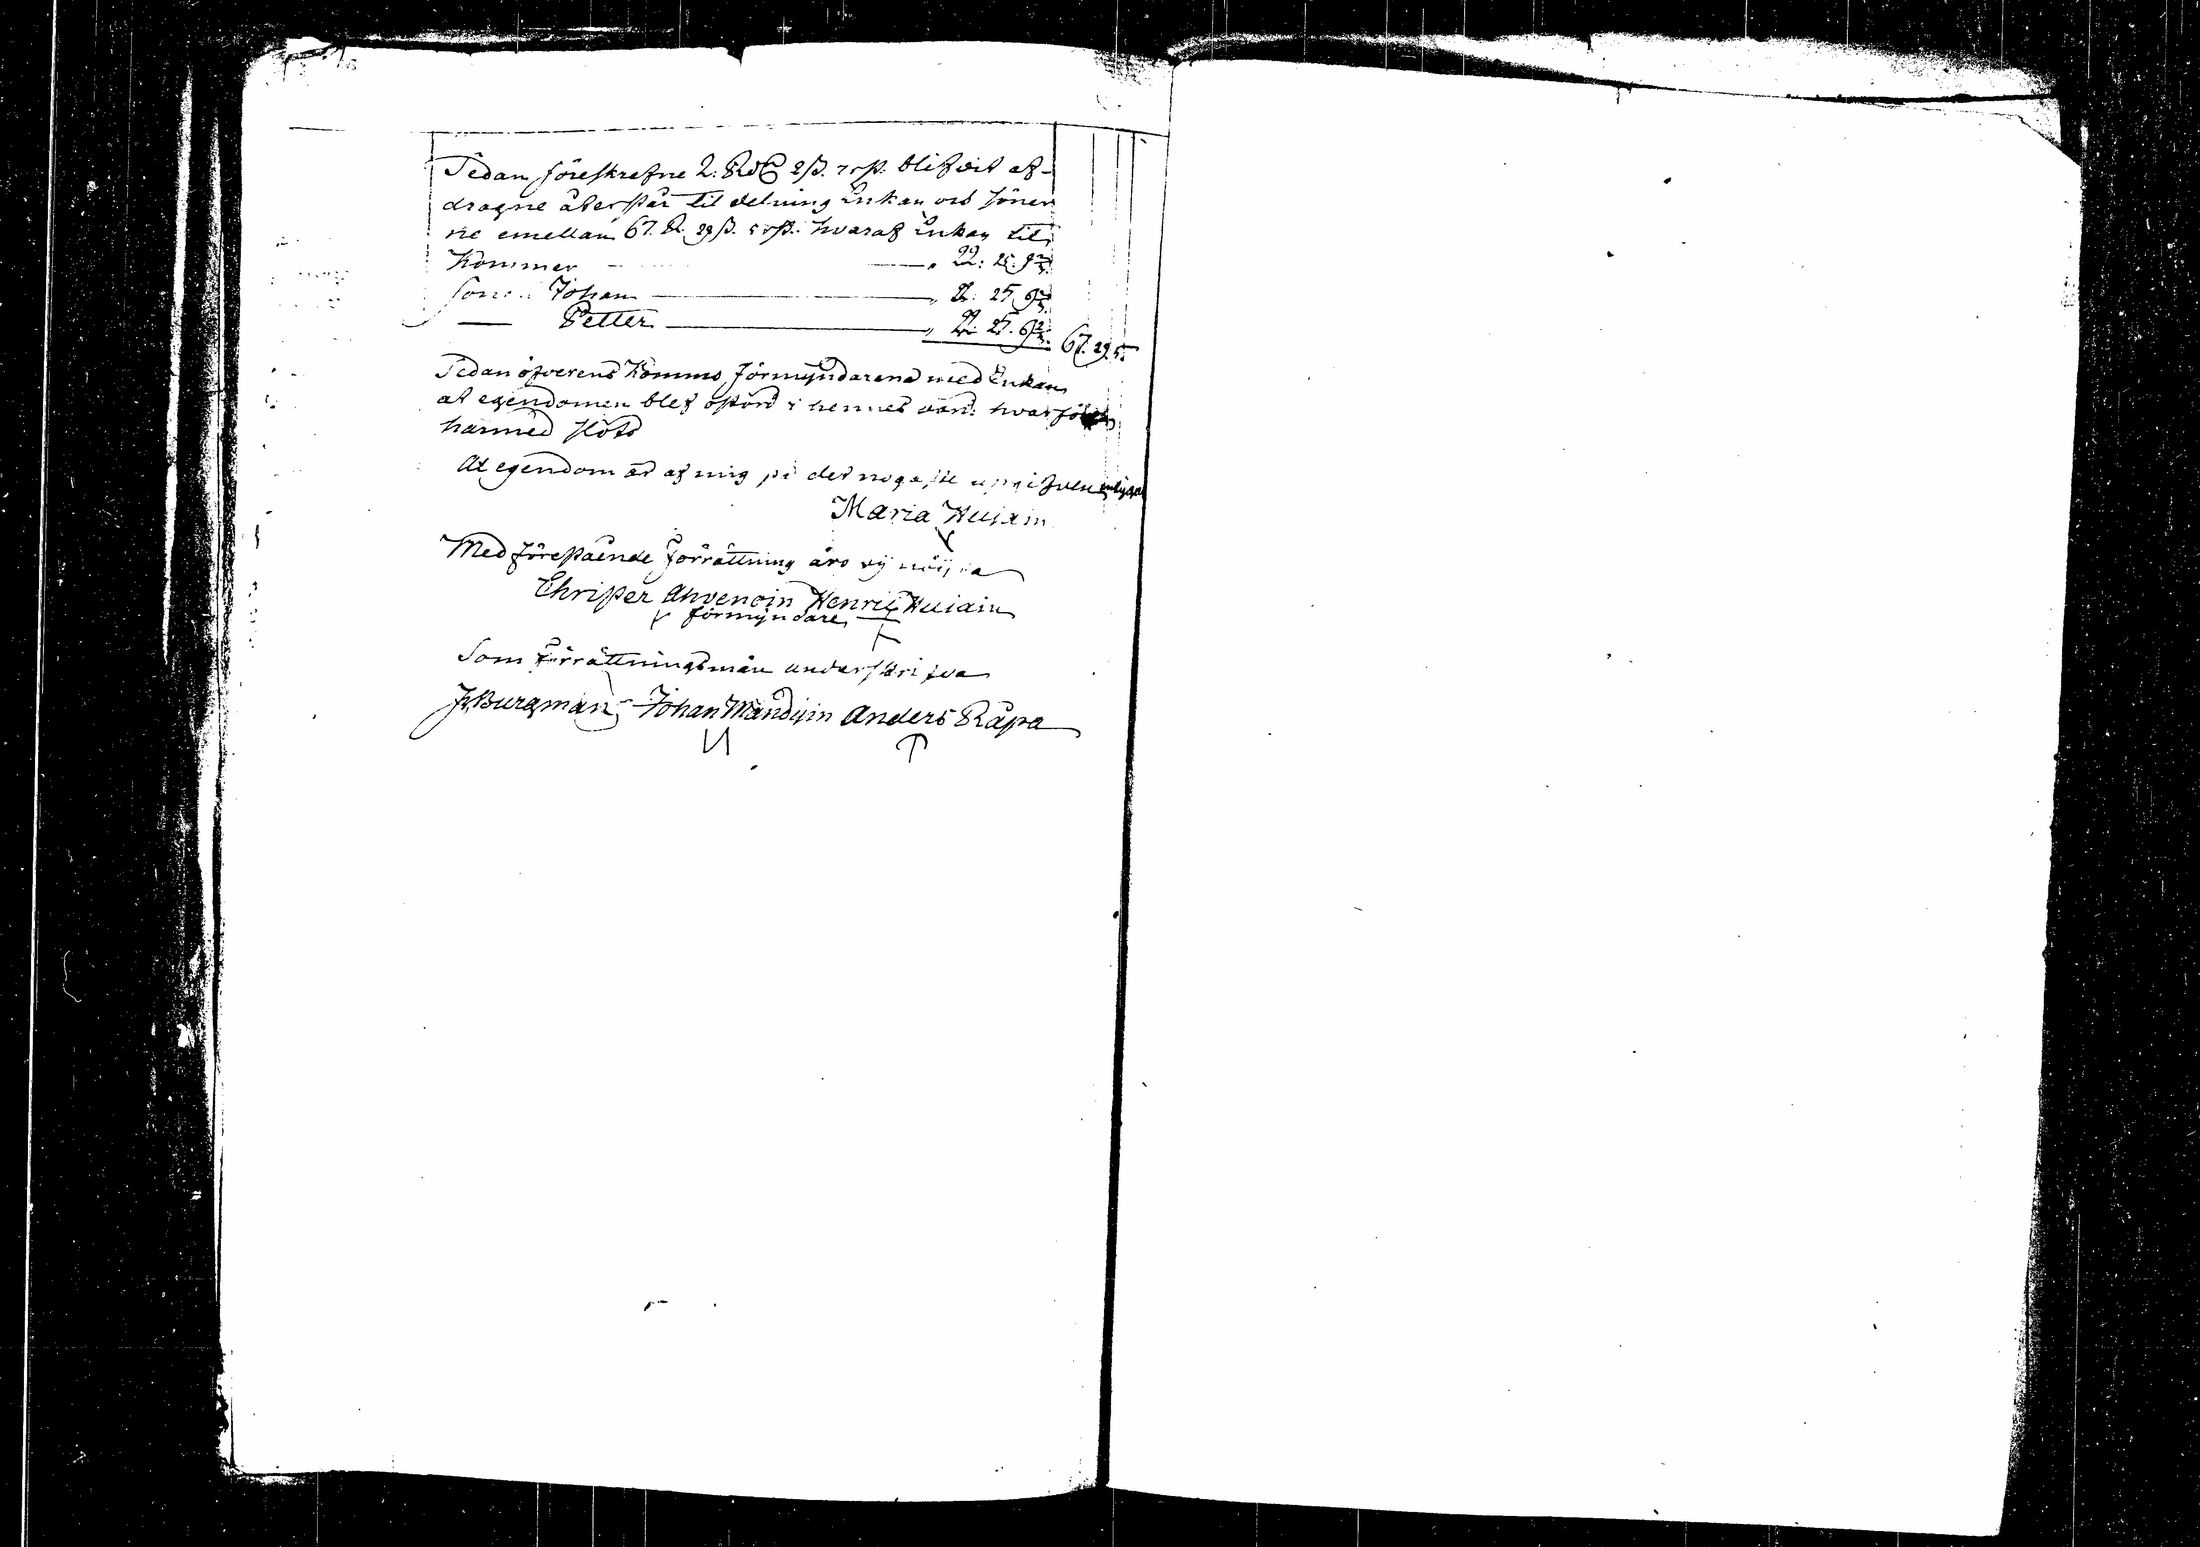 Sedan föreskrefne 2. Rd 2 ß. 7 rst. blifvit af-
dragne återstår til delning Enkan och söner
ne emellan 67. R. 29 ß. 5 rst. hvaraf Enkan til
kommer — 22: 25. 9 2/3.
Sonen Johan — 22. 25. 9 2/3
— Petter — 22. 25. 9 2/3. 67. 29. 5.
Sedan öfverens kommo förmyndarena med Enkan
at egendomen blef ostörd i hennes vård: hvarför
härmed slöts
At egendom är af mig på det nogaste upgifven
Maria Huiain
Med föreståënde förrättning äro vÿ nöijda
Christer Ahvenoin Henric Huiain
förmyndare
Som förrättningsmän underskrifva
J. Burgman Johan Mandyin Anders Räpa